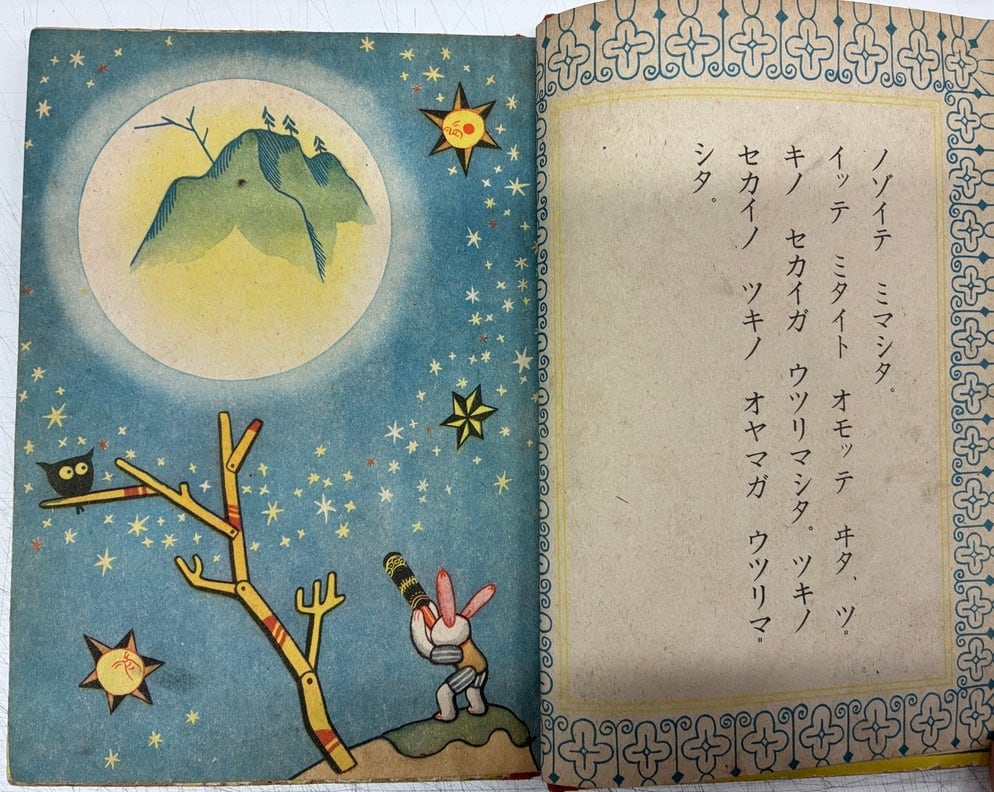 ノゾイテ ミマシタ。
イッテ ミタイト オモッテ ヰタ、ツ〃
キノ セカイガ ウツリマシタ。ツキノ
セカイノ ツキノ オヤマガ ウツリマ〃
シタ。